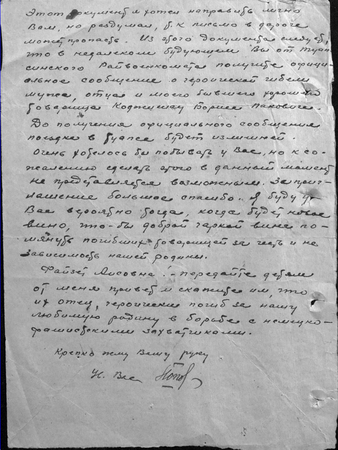 Этот документ я хотел направить лично
Вам, но раздумал, т.к письмо в дороге
может пропасть. Из этого документа следует,
что в недалеком будующем Вы от Туап-
синского Райвоенкомата получите офици-
альное сообщение о героической гибели
мужа, отца и моего бывшего
товарища Бориса
До получения официального сообщения
поездка в Туапсе будет излишней.
Очень хотелось бы побывать у Вас, но к со-
жалению сделать этого в данный момент
не представляется возможным. За приг-
лашение большое спасибо. Я буду у
Вас вероятно тогда, когда будет новое
вино, что-бы доброй чаркой вина по-
мянуть погибших товарищей за честь и не
зависимость нашей родины.
передайте детям
от меня привет и скажите им, что
их отец, героически погиб за нашу
любимую родину в борьбе с немецко-
фашистскими захватчиками.
Крепко жму Вашу руку